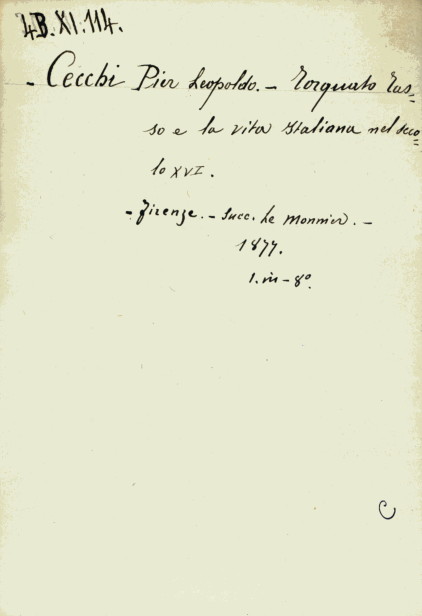 4B.XI.114.
- Cecchi Pier Leopoldo. - Torquato Tas=
so e la vita Italiana nel seco=
lo XVI.
- Firenze. - Succ. Le Monnier. -
1877.
1. in - 8º.
C